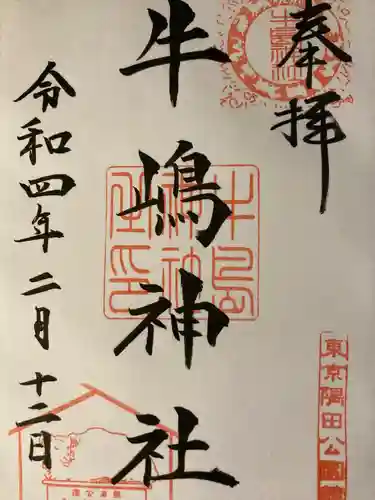 奉拝
牛嶋神社
令和四年二月十二日
牛島神社印
東京隅田公園鎮